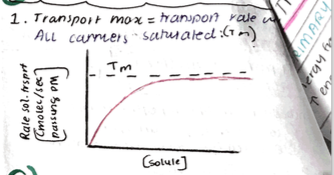 1. Transport max = transport rate w
All carriers saturated:(Tm)
Tm
Rate sol. trsprt
(moles/sec
passing PM)
[solute]